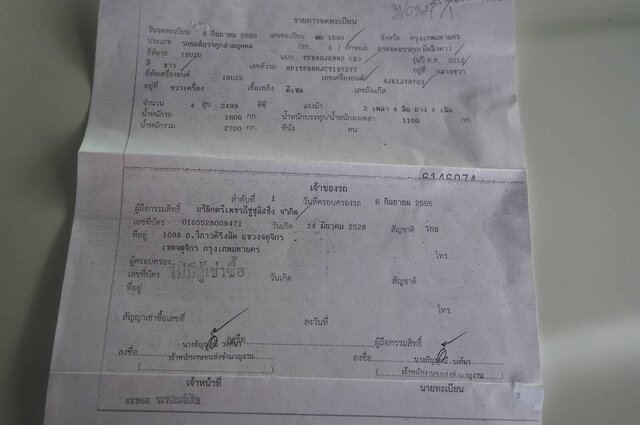 รายการจดทะเบียน
วันจดทะเบียน 6 กันยายน 2555 เลขทะเบียน ฒฒ 1890 จังหวัด กรุงเทพมหานคร
ประเภท รถยนต์บรรทุกส่วนบุคคล (รย. 3 ) ลักษณะ กระบะบรรทุก(มีหลังคา)
ยี่ห้อรถ ISUZU แบบ TFR86JEMN2 (S) รุ่นปี ค.ศ. 2012
สี ขาว เลขตัวรถ MP1TFR86JCT197277 อยู่ที่ กลางขวา
ยี่ห้อเครื่องยนต์ ISUZU เลขเครื่องยนต์ 4JK1JY9703
อยู่ที่ ขวาเครื่อง เชื้อเพลิง ดีเซล เลขถังแก๊ส
จำนวน 4 สูบ 2499 ซีซี แรงม้า 2 เพลา 4 ล้อ ยาง 4 เส้น
น้ำหนักรถ 1600 กก. น้ำหนักบรรทุก/น้ำหนักลงเพลา 1100 กก.
น้ำหนักรวม 2700 กก. ที่นั่ง คน
6146074
เจ้าของรถ
ลำดับที่ 1 วันที่ครอบครองรถ 6 กันยายน 2555
ผู้ถือกรรมสิทธิ์ บริษัทตรีเพชรอีซูซุลิสซิ่ง จำกัด
เลขที่บัตร 0105528009471 วันเกิด 14 มีนาคม 2528 สัญชาติ ไทย
ที่อยู่ 1088 ถ.วิภาวดีรังสิต แขวงจตุจักร
เขตจตุจักร กรุงเทพมหานคร โทร.
ผู้ครอบครอง
เลขที่บัตร ไม่มีผู้เช่าซื้อ วันเกิด สัญชาติ
ที่อยู่ โทร.
สัญญาเช่าซื้อเลขที่ ลงวันที่
ผู้ถือกรรมสิทธิ์
ลงชื่อ วงค์ษา ลงชื่อ วงค์ษา
(เจ้าพนักงานขนส่งชำนาญงาน) (เจ้าพนักงานขนส่งชำนาญงาน)
เจ้าหน้าที่ นายทะเบียน
5